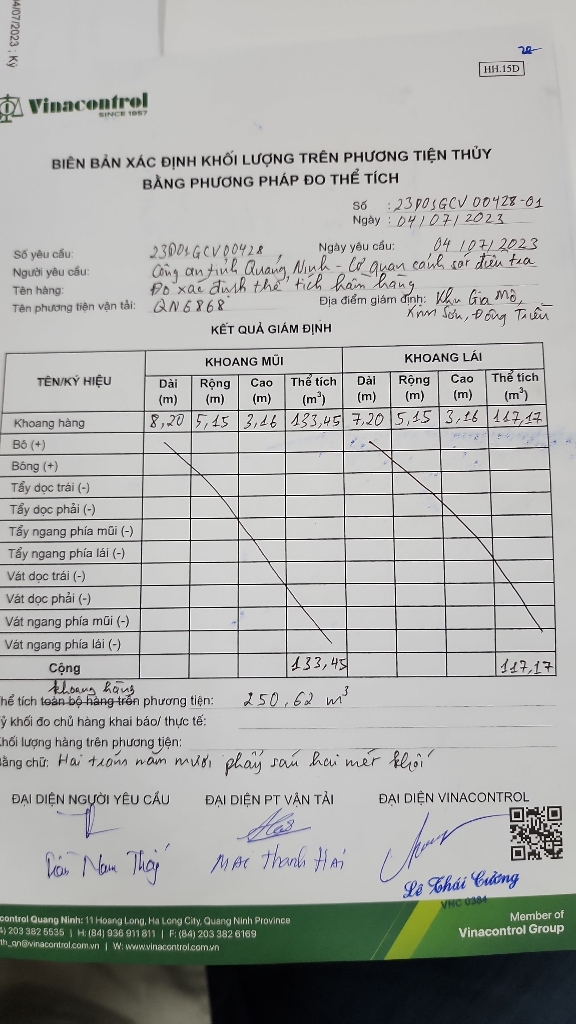 04/07/2023 ; Ký
HH.15D
Vinacontrol
SINCE 1957
BIÊN BẢN XÁC ĐỊNH KHỐI LƯỢNG TRÊN PHƯƠNG TIỆN THỦY
BẰNG PHƯƠNG PHÁP ĐO THỂ TÍCH
Số : 23D01GCV00428-01
Ngày : 04/07/2023
Số yêu cầu: 23D01GCV00428 Ngày yêu cầu: 04/07/2023
Người yêu cầu: Công an tỉnh Quảng Ninh - Cơ quan cảnh sát điều tra
Tên hàng: Đo xác định thể tích hầm hàng
Tên phương tiện vận tải: QN6868 Địa điểm giám định: Khu Gia Mô,
Kim Sơn, Đông Triều
KẾT QUẢ GIÁM ĐỊNH
TÊN/KÝ HIỆU KHOANG MŨI KHOANG LÁI
Dài (m) Rộng (m) Cao (m) Thể tích (m³) Dài (m) Rộng (m) Cao (m) Thể tích (m³)
Khoang hàng 8,20 5,15 3,16 133,45 7,20 5,15 3,16 117,17
Bô (+)
Bông (+)
Tẩy dọc trái (-)
Tẩy dọc phải (-)
Tẩy ngang phía mũi (-)
Tẩy ngang phía lái (-)
Vát dọc trái (-)
Vát dọc phải (-)
Vát ngang phía mũi (-)
Vát ngang phía lái (-)
Cộng 133,45 117,17
khoang hàng
hể tích toàn bộ hàng trên phương tiện: 250,62 m³
ỷ khối do chủ hàng khai báo/ thực tế:
hối lượng hàng trên phương tiện:
ằng chữ: Hai trăm năm mươi phẩy sáu hai mét khối
ĐẠI DIỆN NGƯỜI YÊU CẦU ĐẠI DIỆN PT VẬN TẢI ĐẠI DIỆN VINACONTROL
Nam MAC Thanh HAI
Lê Thái Cường
VHC 0384
control Quang Ninh: 11 Hoang Long, Ha Long City, Quang Ninh Province
4) 203 382 5535 | H: (84) 936 911 811 | F: (84) 203 382 6169
th_qn@vinacontrol.com.vn | W: www.vinacontrol.com.vn
Member of
Vinacontrol Group